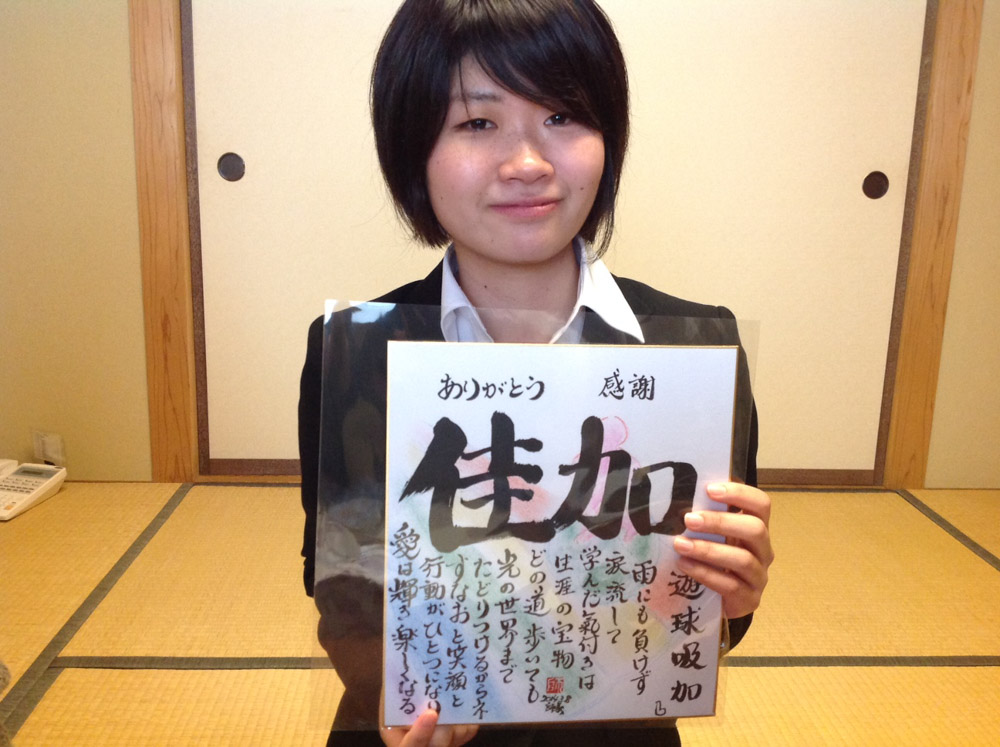 ありがとう 感謝
佳加
遊球吸加
雨にも負けず
涙流して
学んだ氣付きは
生涯の宝物
どの道歩いても
光の世界まで
たどりつけるからネ
すなおと笑顔と
行動がひとつになり
愛は輝き楽しくなる